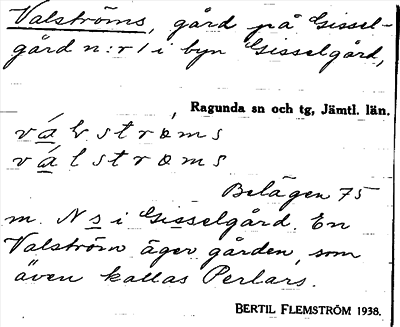 Valströms, gård på Gissel-
gård n:r 1 i byn Gisselgård,
Ragunda sn och tg, Jämtl. län.
válstrøms
válstrøms
Belägen 75
m. N s i Gisselgård. En
Valström äger gården, som
även kallas Perlars.
BERTIL FLEMSTRÖM 1938.